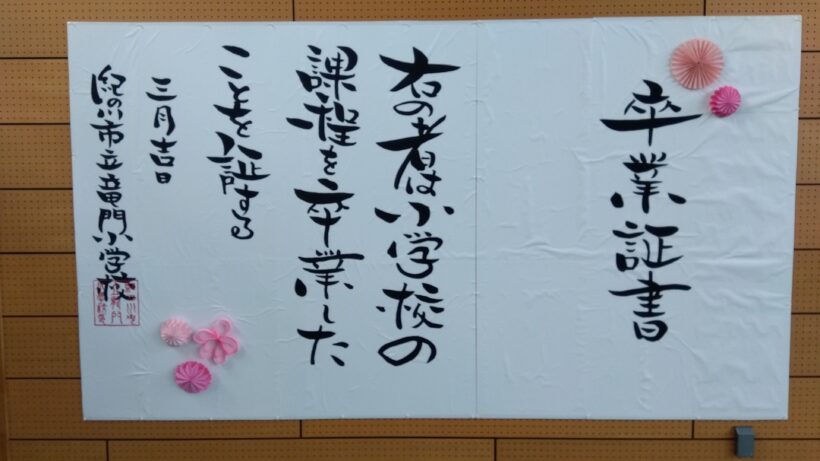 卒業証書
右の者は小学校の
課程を卒業した
ことを証する
三月吉日
紀の川市立竜門小学校